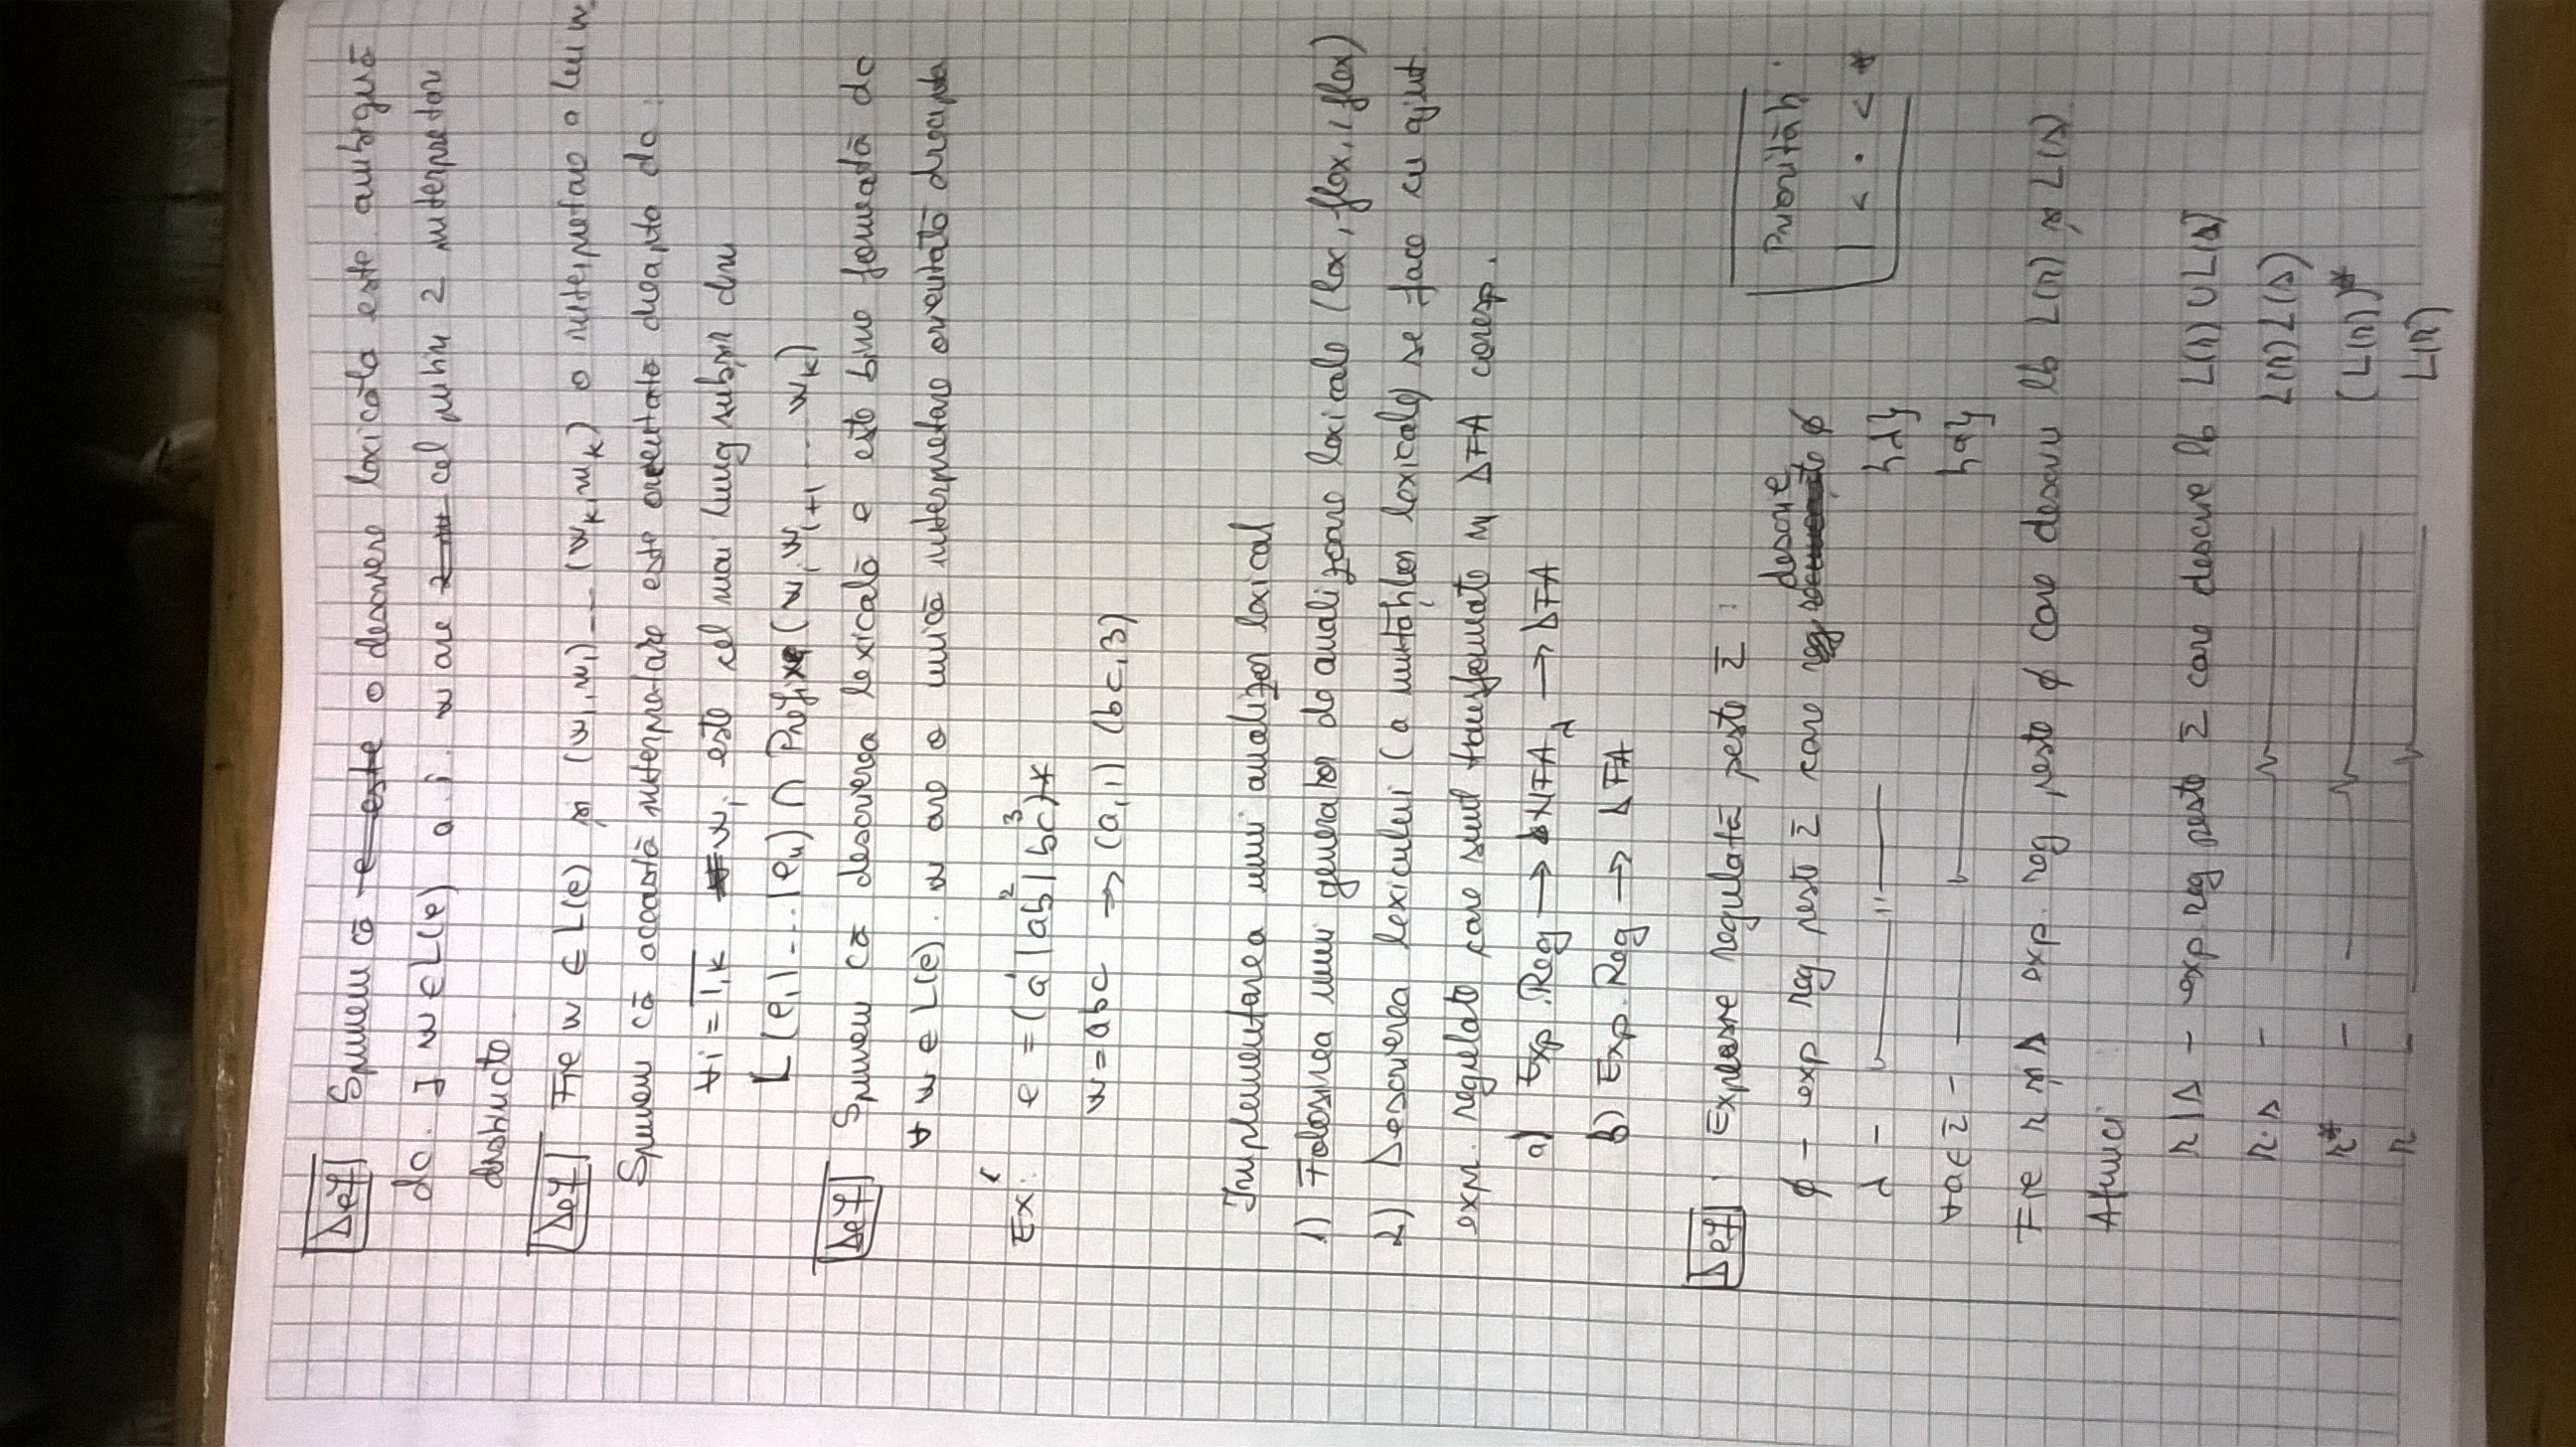 Def Spunem că e este o descriere lexicală este ambiguă
dc. ∃ w ∈ L(e) a.î. w are 2 cel puțin 2 interpretări
distincte
Def Fie w ∈ L(e) și (w₁, m₁) ... (wₖ, mₖ) o interpretare a lui w.
Spunem că această interpretare este orientată dreapta dc:
∀i = 1,k wᵢ este cel mai lung subșir din
L(e₁|...|eₙ) ∩ Prefixe(wᵢ wᵢ₊₁ ... wₖ)
Def Spunem că descrierea lexicală e este bine formată dc
∀ w ∈ L(e). w are o unică interpretare orientată dreapta
Ex: e = (a¹ | ab² | bc³)*
w = abc → (a,1) (bc,3)
Implementarea unui analizor lexical
1) Folosirea unui generator de analizoare lexicale (lex, flex, jflex)
2) Descrierea lexicului (a unităților lexicale) se face cu ajut.
exp. regulate care sunt transformate în DFA coresp.
a) Exp. Reg → NFA_λ → DFA
b) Exp. Reg → DFA
Def: Expresie regulată peste Σ:
descrie
∅ - exp reg peste Σ care ∅
λ - —— " —— {λ}
∀a∈Σ - —— " —— {a}
Priorități:
| < · < *
Fie r și s exp. reg peste ∅ care descriu lb L(r) și L(s).
Atunci
r|s - exp reg peste Σ care descrie lb L(r) ∪ L(s)
r·s - —— " —— L(r)L(s)
r* - —— " —— (L(r))*
r - —— " —— L(r)